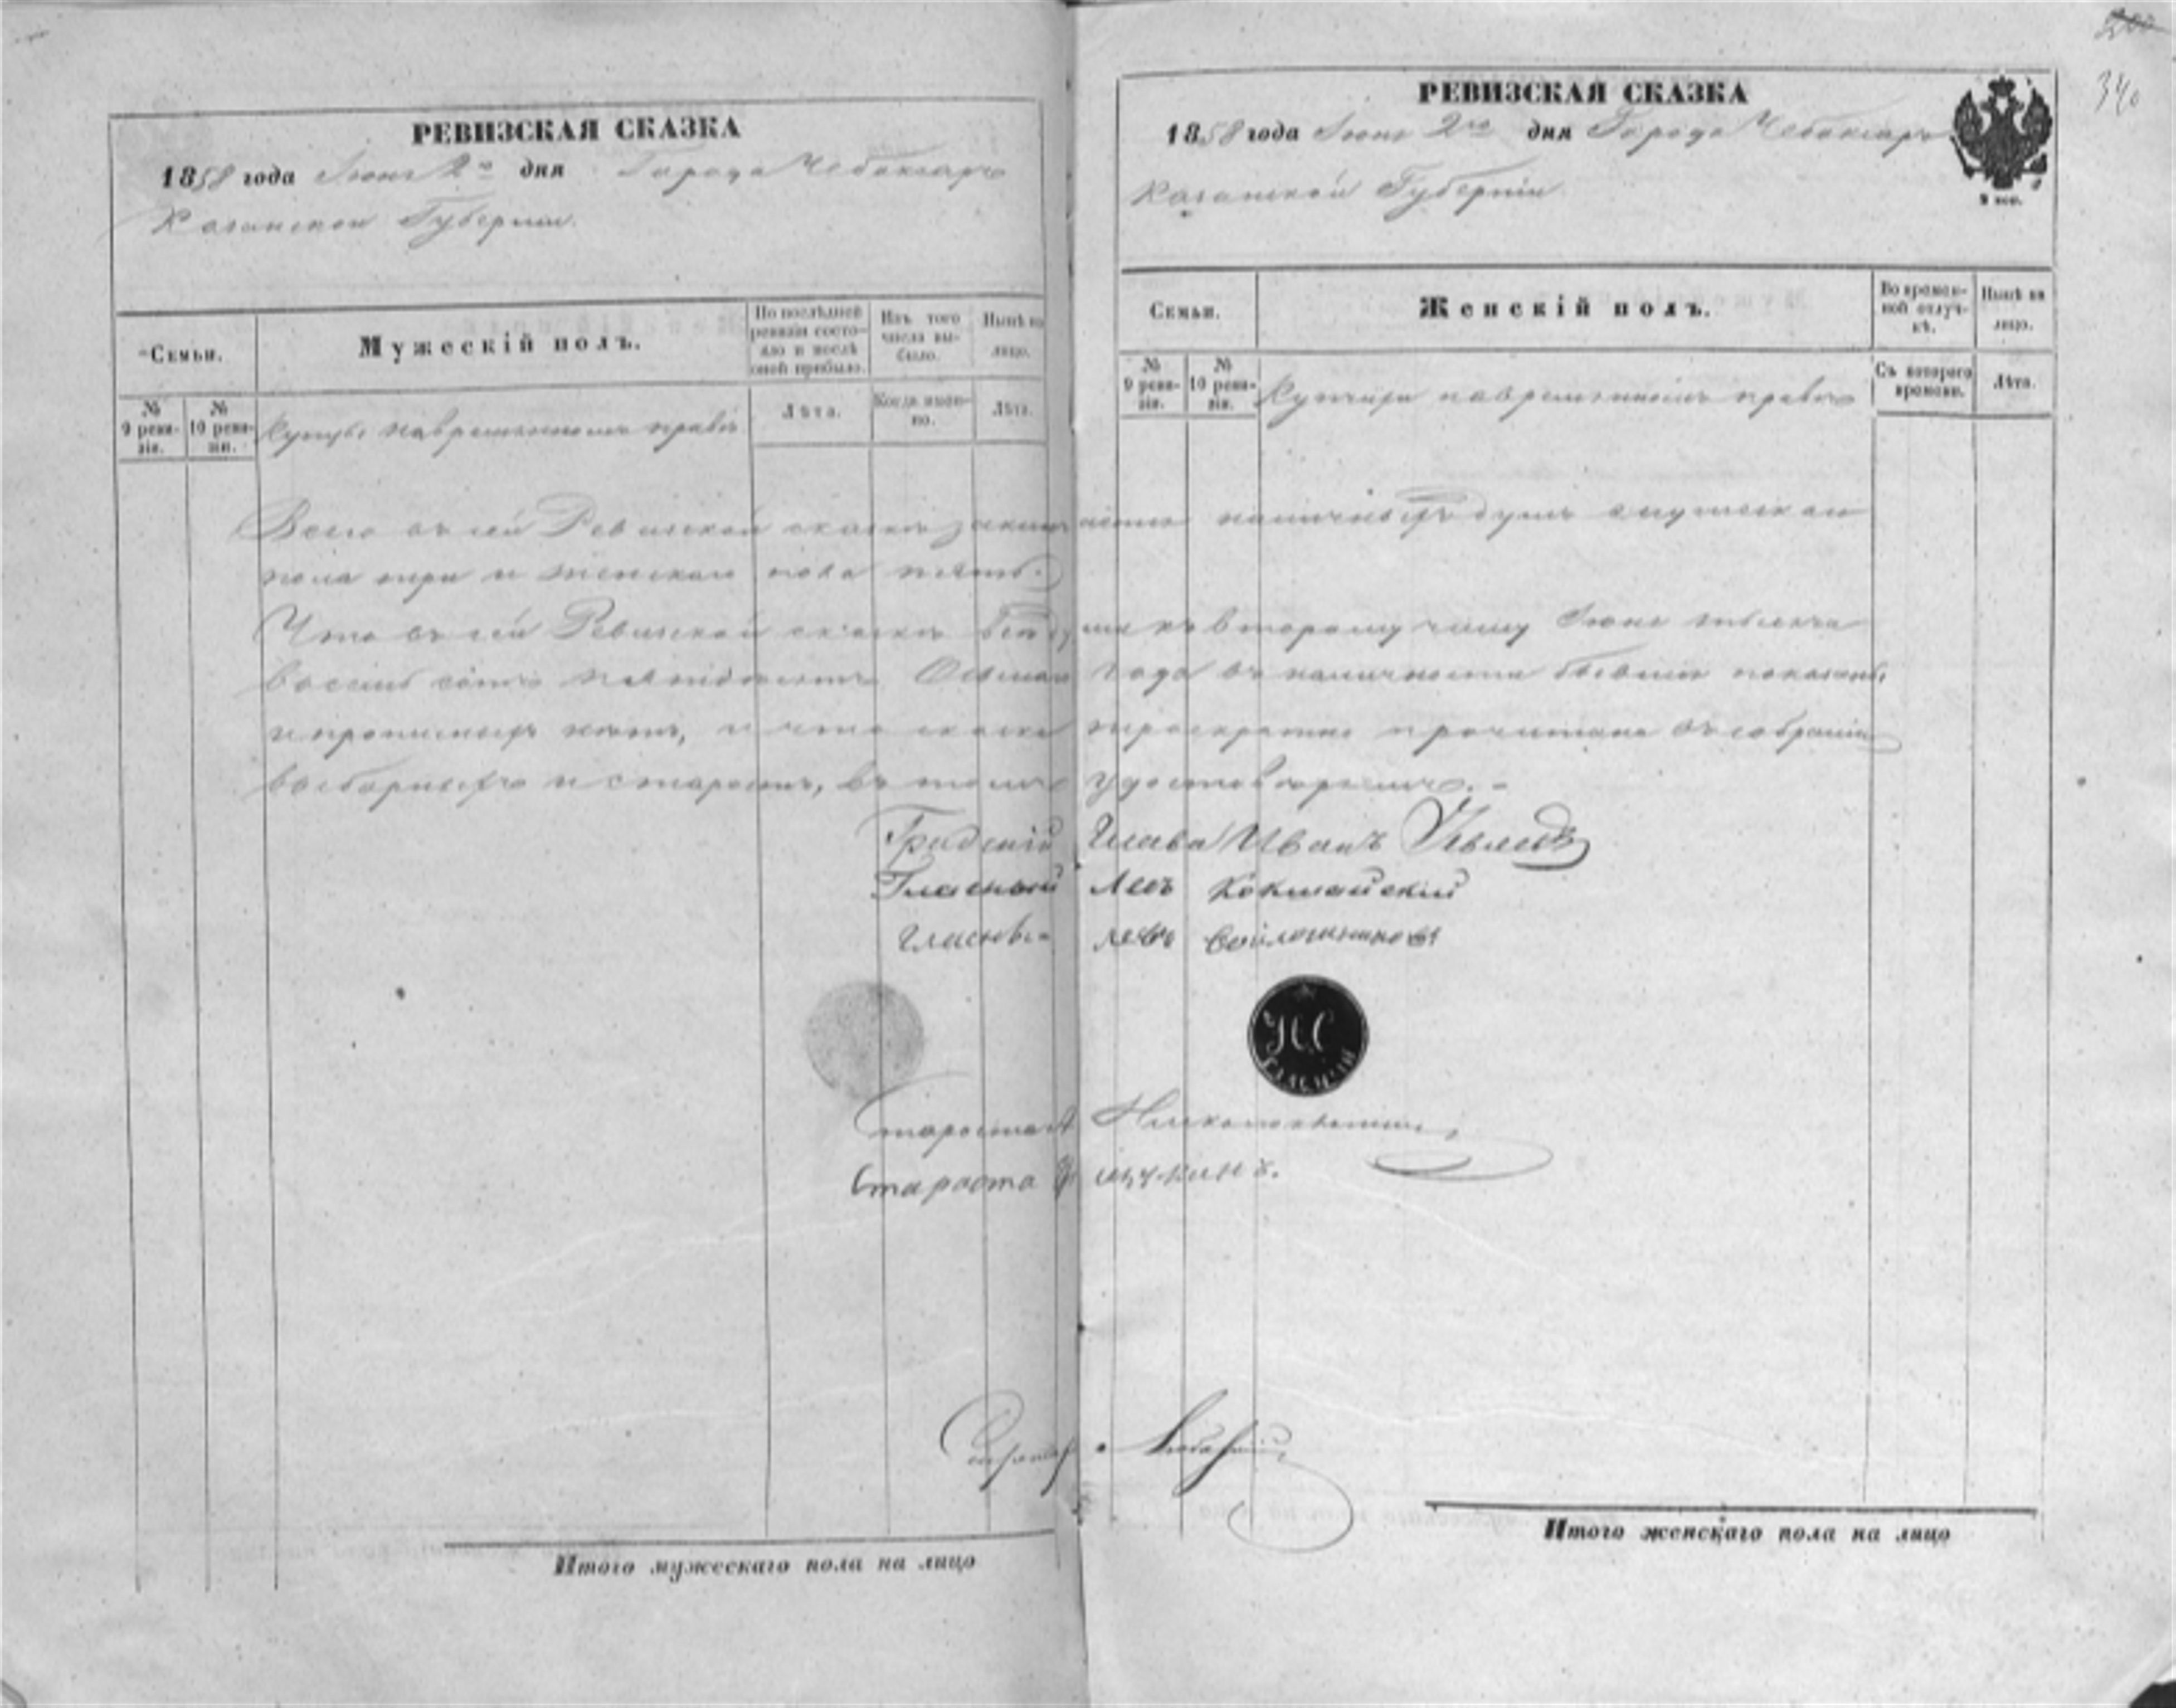 РЕВИЗСКАЯ СКАЗКА
1858 года Іюня 2го дня Города Чебоксаръ
Казанской Губерніи.
Семьи.
Мужескій полъ.
По послѣдней ревизіи состояло и послѣ оной прибыло.
Изъ того числа выбыло.
Нынѣ на лицо.
№ 9 ревизіи.
№ 10 ревизіи.
Купцы на временномъ правѣ
Лѣта.
Когда именно.
Лѣта.
340
РЕВИЗСКАЯ СКАЗКА
1858 года Іюня 2го дня Города Чебоксаръ
Казанской Губерніи
Семьи.
Женскій полъ.
Во временной отлучкѣ.
Нынѣ на лицо.
№ 9 ревизіи.
№ 10 ревизіи.
Съ котораго времени.
Лѣта.
Всего въ сей Ревизской сказкѣ наличныхъ душъ мужескаго
пола три и женскаго пола пять.
Что въ сей Ревизской сказкѣ ко второму числу Іюня мѣсяца
восемь сотъ пятьдесятъ Осьмаго года въ наличности бывшіе показаны,
и прописныхъ нѣтъ, и что сказка троекратно прочитана въ собраніи
выборныхъ и старостъ, въ томъ удостовѣряемъ.
Градскій Глава Иванъ
Гласный Левъ Кокшайскій
Гласный Левъ
Староста
Староста
Итого мужескаго пола на лицо
Итого женскаго пола на лицо